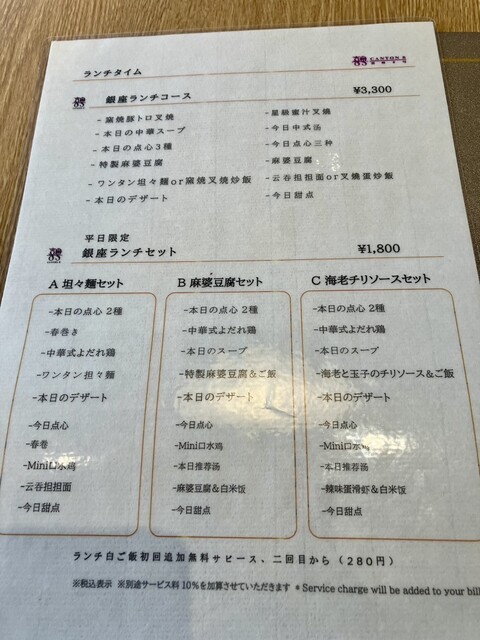 ランチタイム
CANTON 8
銀座ランチコース ¥3,300
-窯焼豚トロ叉焼 -星級蜜汁叉燒
-本日の中華スープ -今日中式汤
-本日の点心3種 -今日点心三种
-特製麻婆豆腐 -麻婆豆腐
-ワンタン坦々麺or窯焼叉焼炒飯 -云吞担担面or叉燒蛋炒飯
-本日のデザート -今日甜点
平日限定
銀座ランチセット ¥1,800
A 坦々麺セット
-本日の点心 2種
-春巻き
-中華式よだれ鶏
-ワンタン坦々麺
-本日のデザート
-今日点心
-春卷
-Mini口水鸡
-云吞担担面
-今日甜点
B 麻婆豆腐セット
-本日の点心 2種
-中華式よだれ鶏
-本日のスープ
-特製麻婆豆腐&ご飯
-本日のデザート
-今日点心
-Mini口水鸡
-本日推荐汤
-麻婆豆腐&白米饭
-今日甜点
C 海老チリソースセット
-本日の点心 2種
-中華式よだれ鶏
-本日のスープ
-海老と玉子のチリソース&ご飯
-本日のデザート
-今日点心
-Mini口水鸡
-本日推荐汤
-辣味蛋滑虾&白米饭
-今日甜点
ランチ白ご飯初回追加無料サビース、二回目から(280円)
※税込表示 ※別途サービス料10%を加算させていただきます * Service charge will be added to your bill